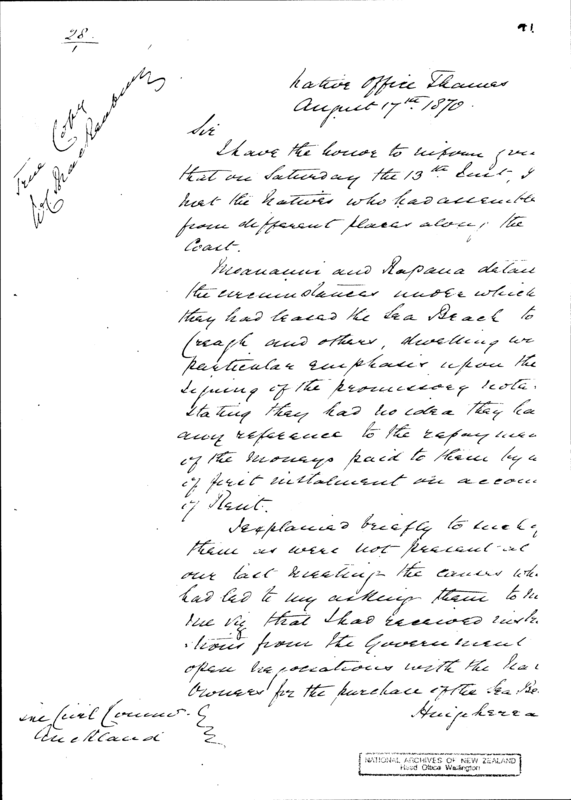 28.
91
True Copy
Native Office Thames
August 17th 1870.
Sir
I have the honor to inform you
that on Saturday the 13th Inst, I
met the Natives who had assemble
from different places along the
Coast.
and Rapana detail
the circumstances under which
they had leased the Sea Beach to
Creagh and others, dwelling
particular emphasis upon the
signing of the promissory note.
Stating they had no idea they ha
any reference to the repaymen
of the Moneys paid to them by
of first instalment on accoun
of Rent.
I explained briefly to such of
them as were not present at
our last meeting the causes wh
had led to my asking them to
me viz that I had received instr
:tions from the Government
open negociations with the Na
Owners for the purchase of the Sea Be
The Civil Commr
Auckland
NATIONAL ARCHIVES OF NEW ZEALAND
Head Office Wellington